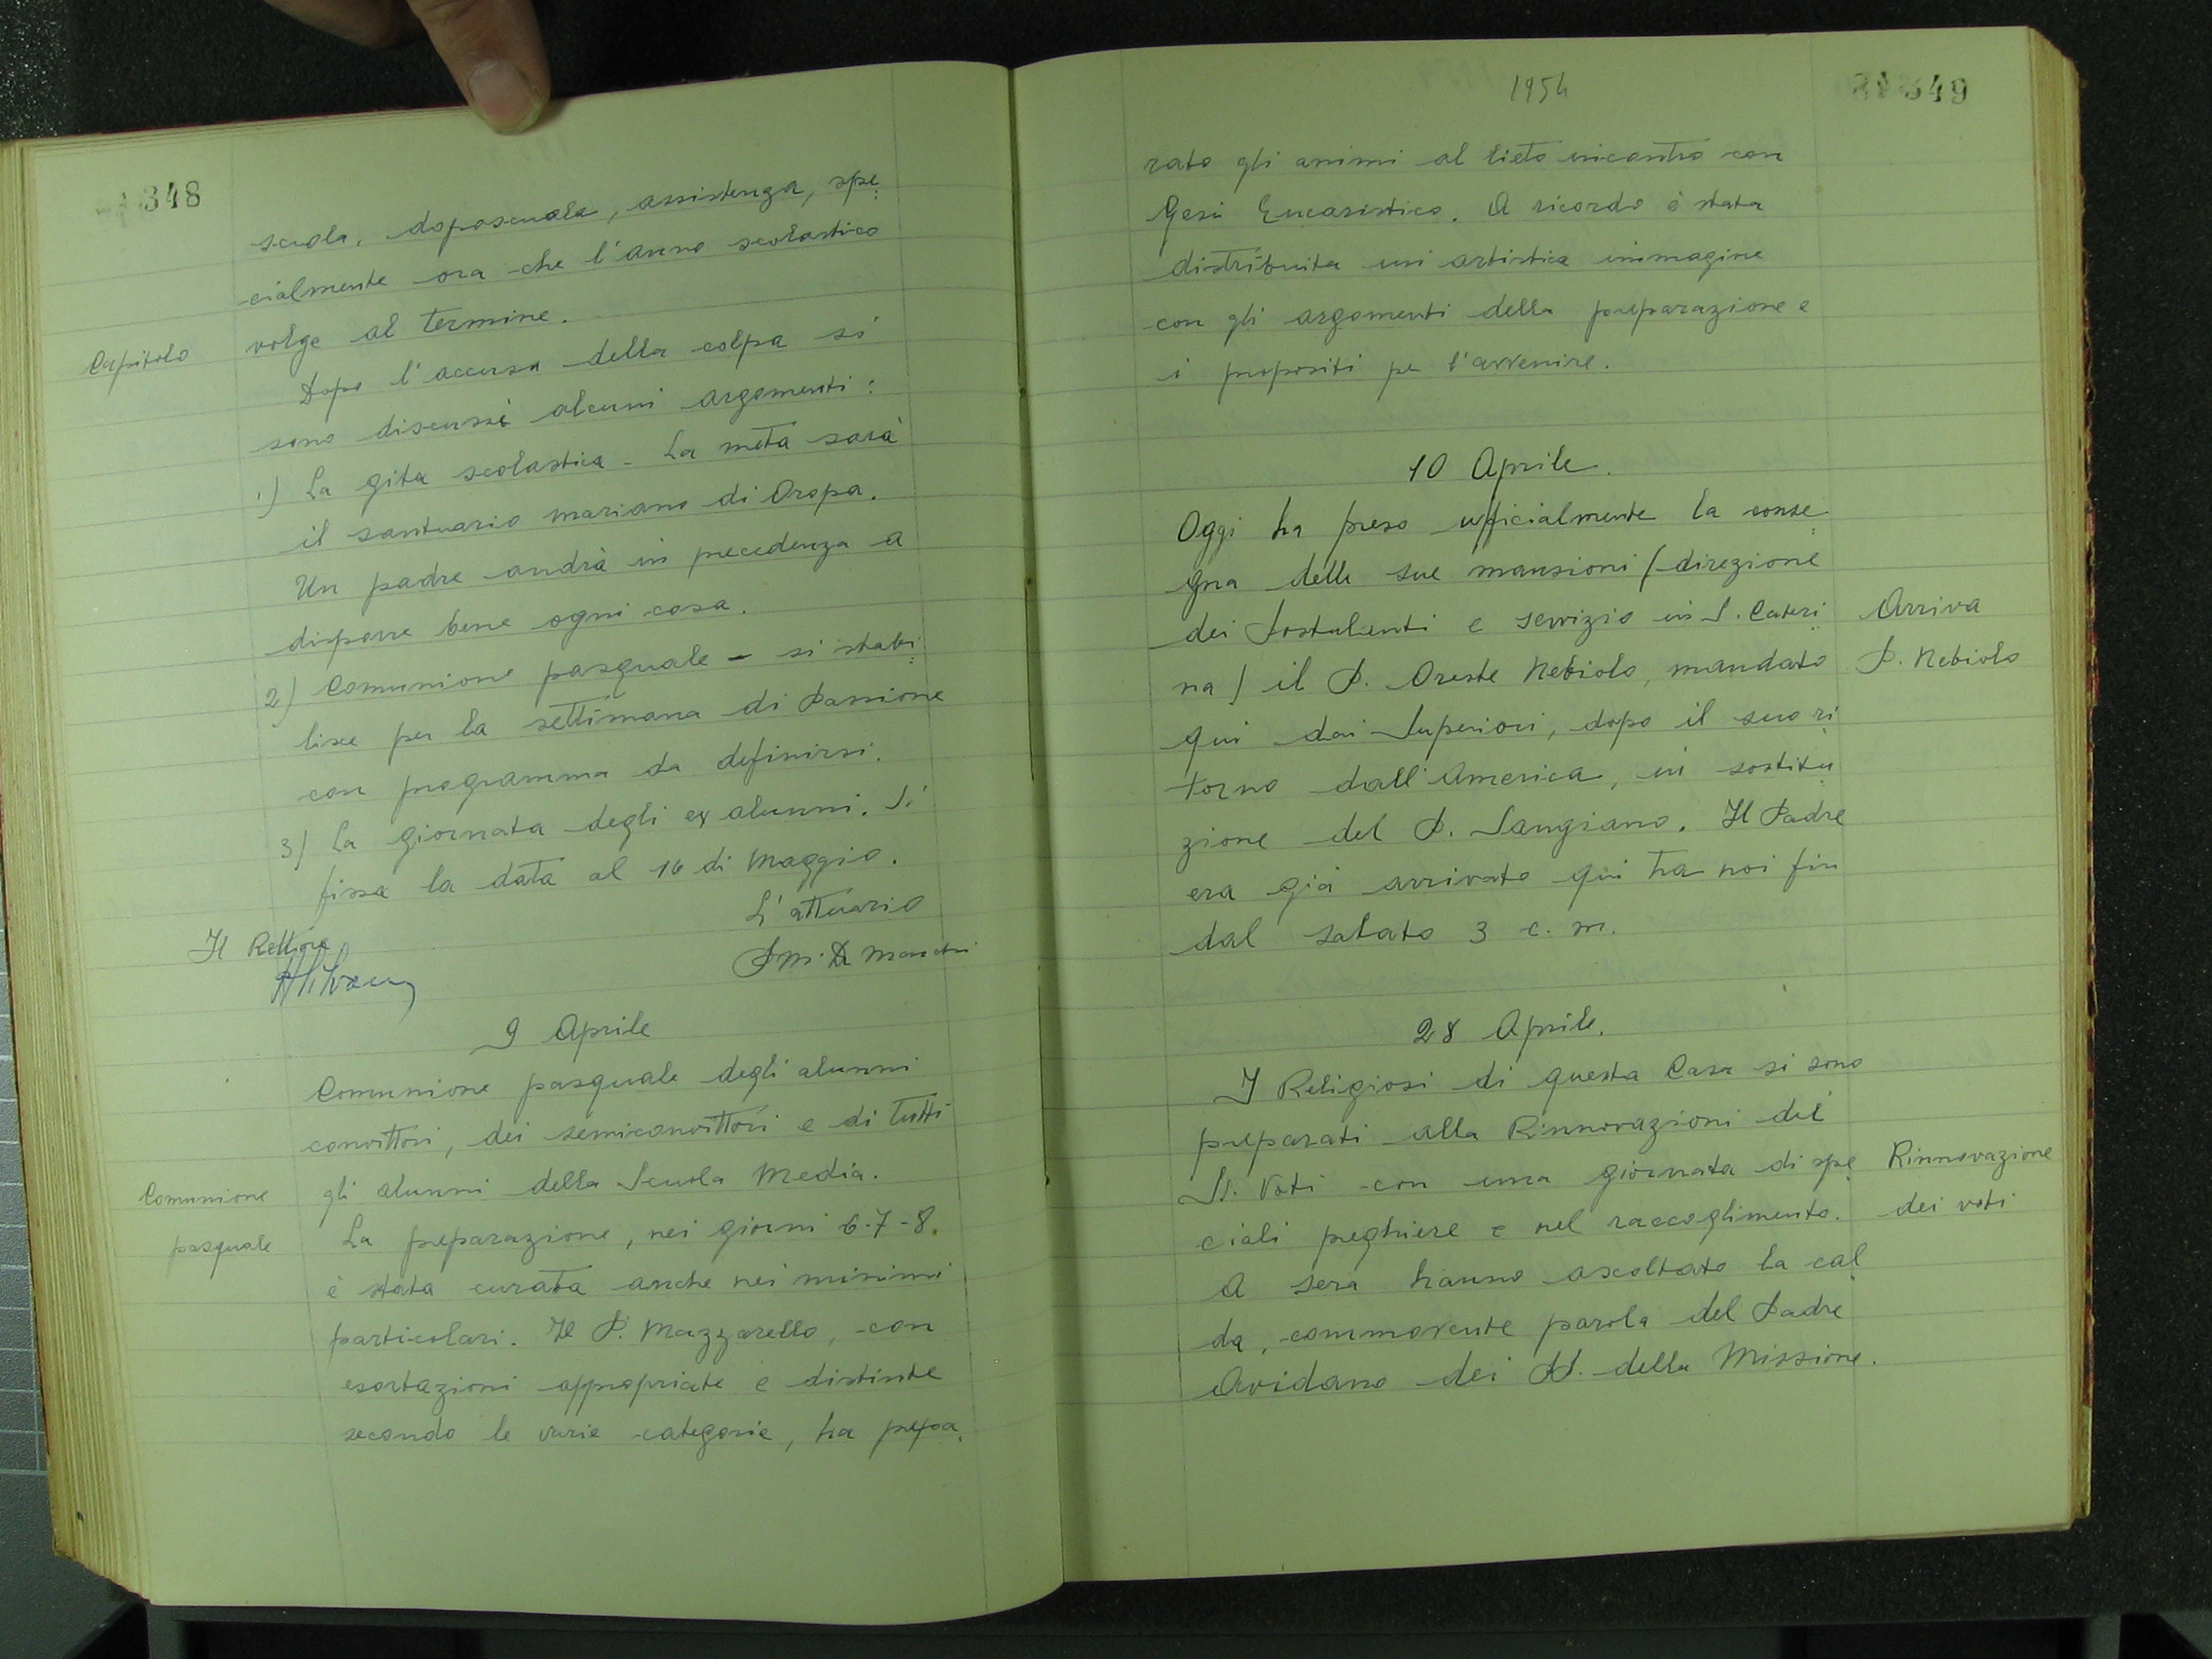 348
scuola, doposcuola, assistenza, spe
cialmente ora che l'anno scolastico
volge al termine.
Capitolo
Dopo l'accusa della colpa si
sono discussi alcuni argomenti:
1) La gita scolastica - La meta sarà
il santuario mariano di Oropa.
Un padre andrà in precedenza a
disporre bene ogni cosa.
2) Comunione pasquale - si stabi
lisce per la settimana di Passione
con programma da definirsi.
3) La giornata degli ex alunni. Si
fissa la data al 16 di Maggio.
L'attuario
Il Rettore
9 Aprile
Comunione pasquale degli alunni
convittori, dei semiconvittori e di tutti
gli alunni della Scuola Media.
Comunione
pasquale
La preparazione, nei giorni 6-7-8.
è stata curata anche nei minimi
particolari. Il P. Mazzarello, con
esortazioni appropriate e distinte
secondo le varie categorie, ha prepa
1954
349
rato gli animi al lieto incontro con
Gesù Eucaristico. A ricordo è stata
distribuita un'artistica immagine
con gli argomenti della preparazione e
i propositi per l'avvenire.
10 Aprile.
Oggi ha preso ufficialmente la conse
gna delle sue mansioni (direzione
dei Postulanti e servizio in S. Cateri
na) il P. Oreste Nebiolo, mandato
Arriva
P. Nebiolo
qui dai Superiori, dopo il suo ri
torno dall'America, in sostitu
zione del P. Sangiano. Il Padre
era già arrivato qui tra noi fin
dal sabato 3 c. m.
28 Aprile.
I Religiosi di questa Casa si sono
preparati alla Rinnovazioni dei
SS. Voti con una giornata di spe
ciali preghiere e nel raccoglimento.
Rinnovazione
dei voti
A sera hanno ascoltato la cal
da, commovente parola del Padre
Avidano dei PP. della Missione.